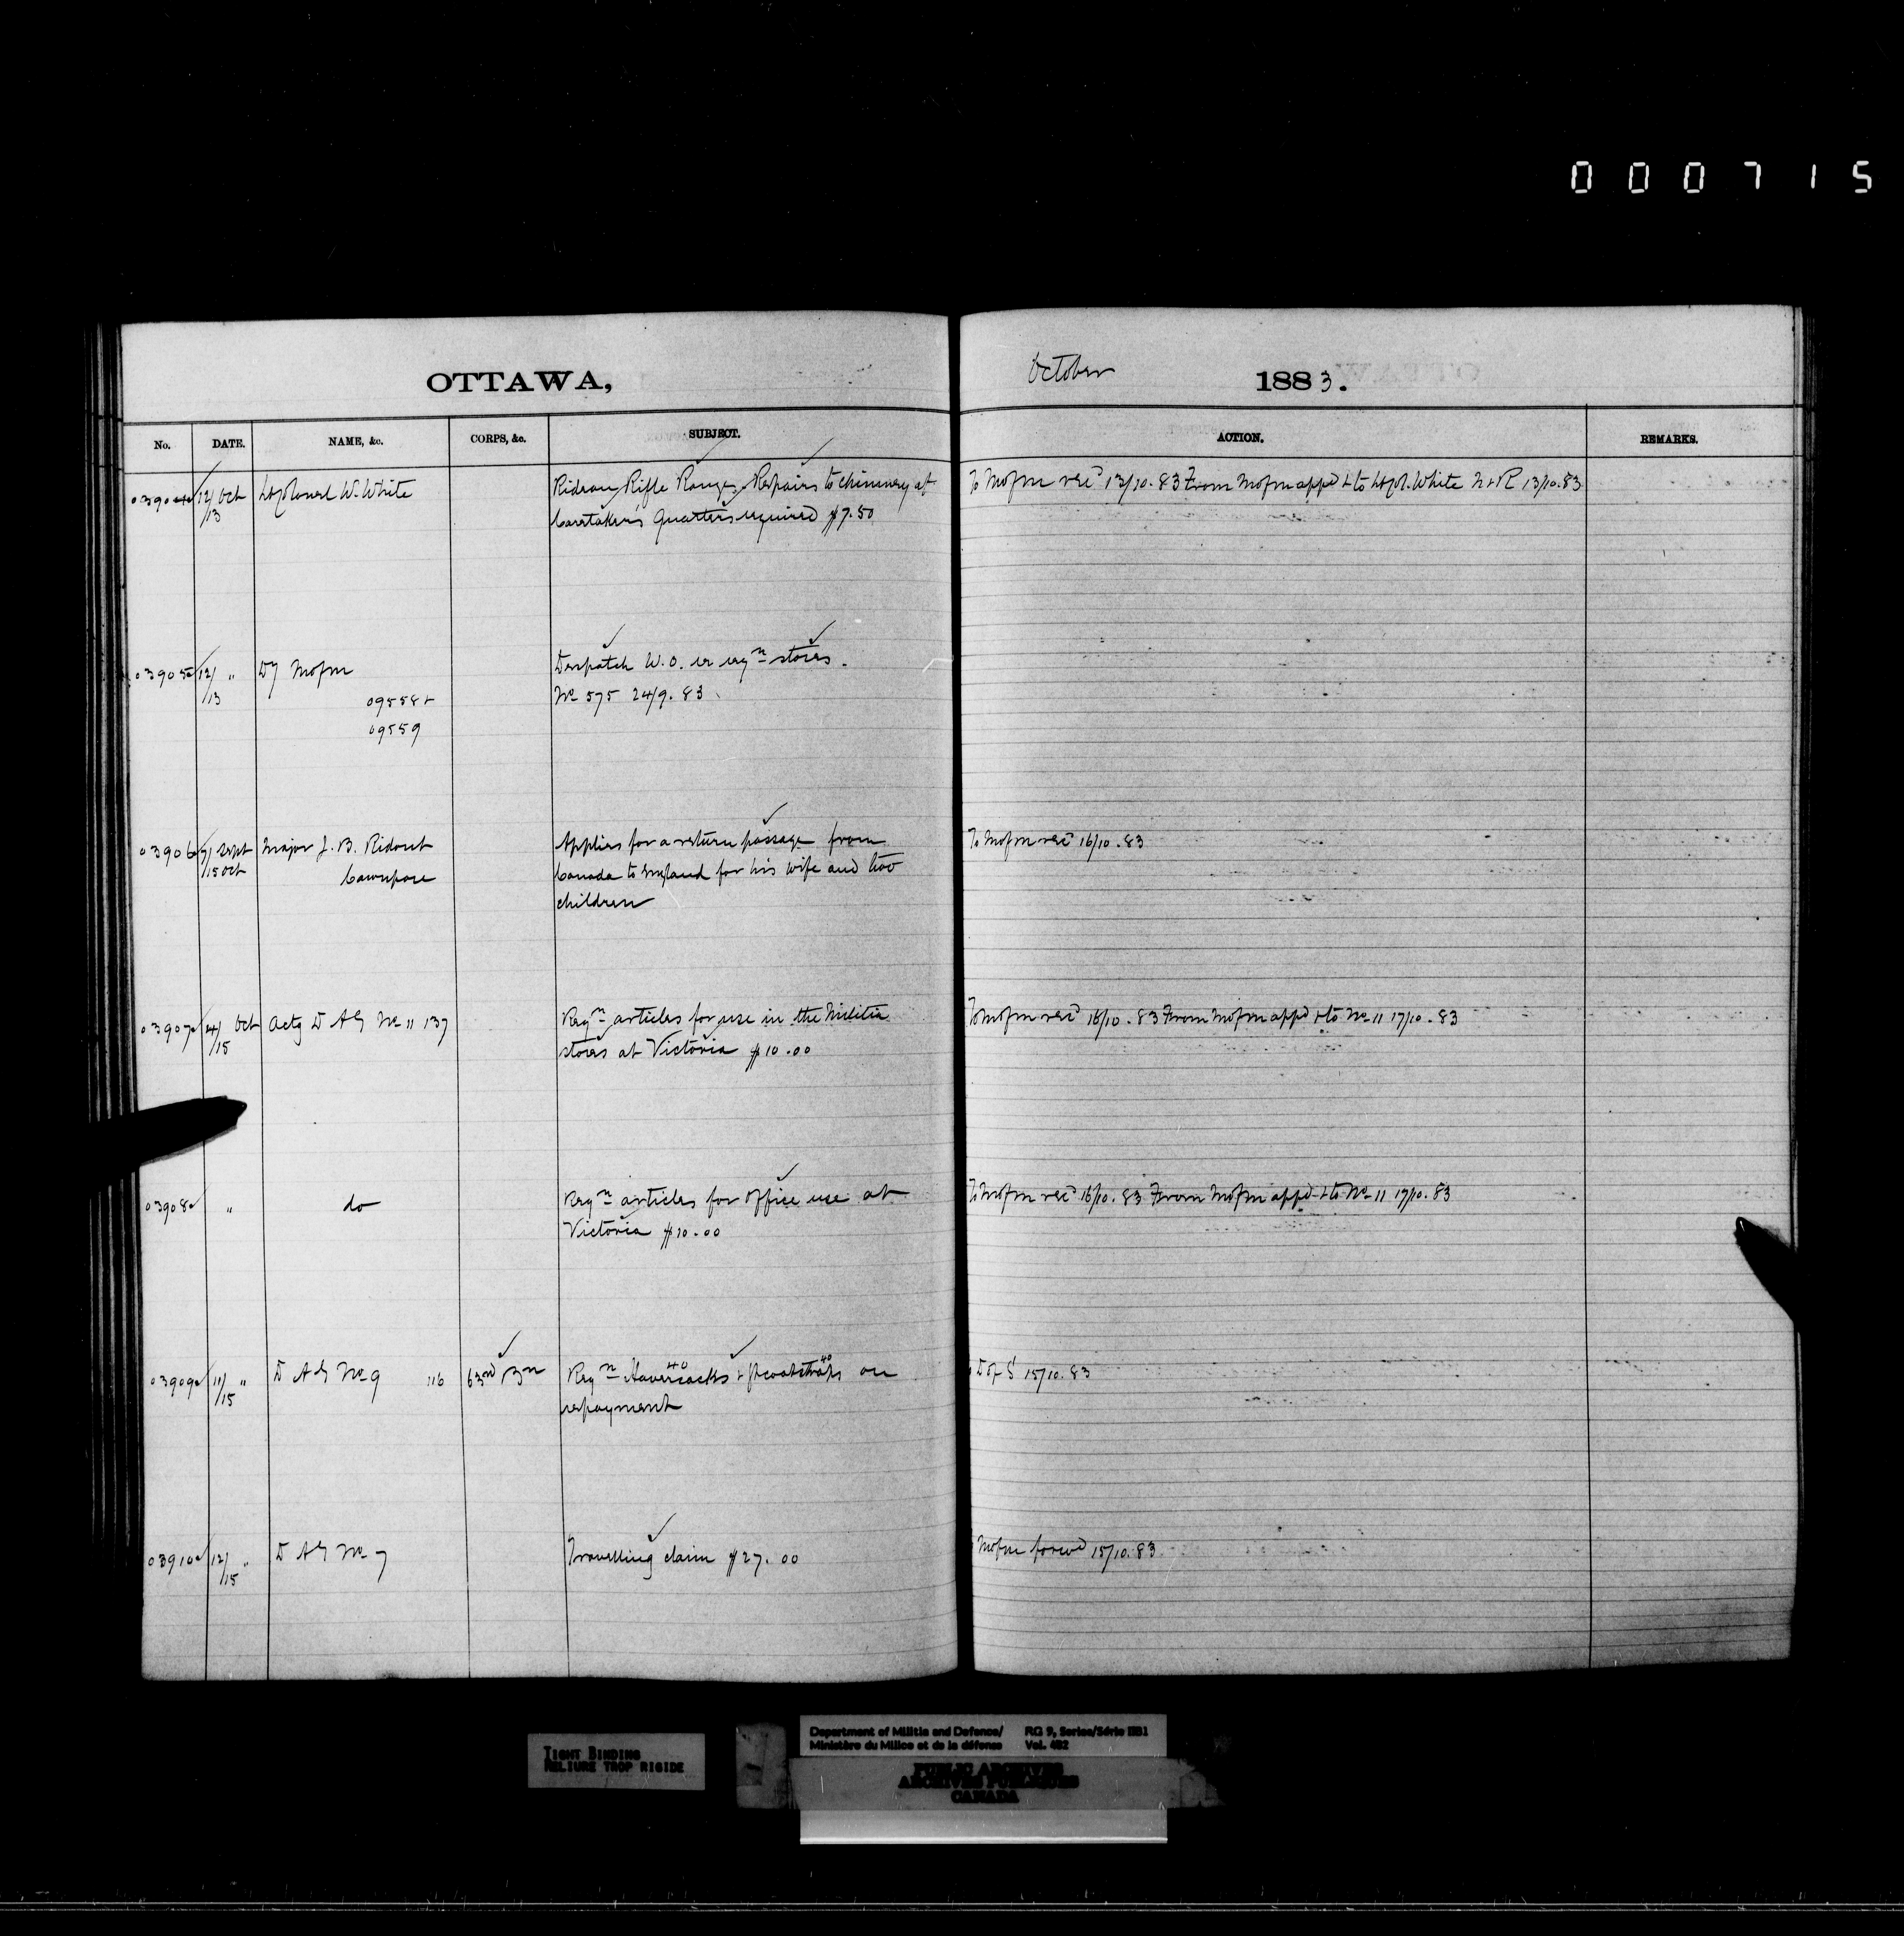 000715
OTTAWA,
October 1883.
No. DATE. NAME, &c. CORPS, &c. SUBJECT. ACTION. REMARKS.
03904 12/13 Oct Lt Colonel W. White Rideau Rifle Range. Repairs to chimney at To Mofm rec'd 13/10.83 From Mofm app'd + to Lt Col. White N+R 13/10.83
Caretaker's Quarters required $7.50
03905 12/13 " Dy Mofm Despatch W.O. re reqn stores.
09558+ No 575 24/9.83
09559
03906 7/ Sept Major J. B. Ridout Applies for a return passage from To Mofm rec'd 16/10.83
15 Oct Cawnpore Canada to England for his wife and two
children
03907 14/15 Oct Actg D A G No 11 137 Reqn articles for use in the Militia To Mofm rec'd 16/10.83 From Mofm app'd + to No 11 17/10.83
stores at Victoria $10.00
03908 " do Reqn articles for office use at To Mofm rec'd 16/10.83 From Mofm app'd + to No 11 17/10.83
Victoria $10.00
03909 11/15 " D A G No 9 116 63rd Bn Reqn Haversacks 40 + Gt coat straps 40 on D of S 15/10.83
repayment
03910 12/15 " D A G No 7 Travelling claim $27.00 Mofm forwd 15/10.83
TIGHT BINDING
RELIURE TROP RIGIDE
Department of Militia and Defence/ RG 9, Series/Série IIB1
Ministère du Milice et de la défense Vol. 482
PUBLIC ARCHIVES
ARCHIVES PUBLIQUES
CANADA